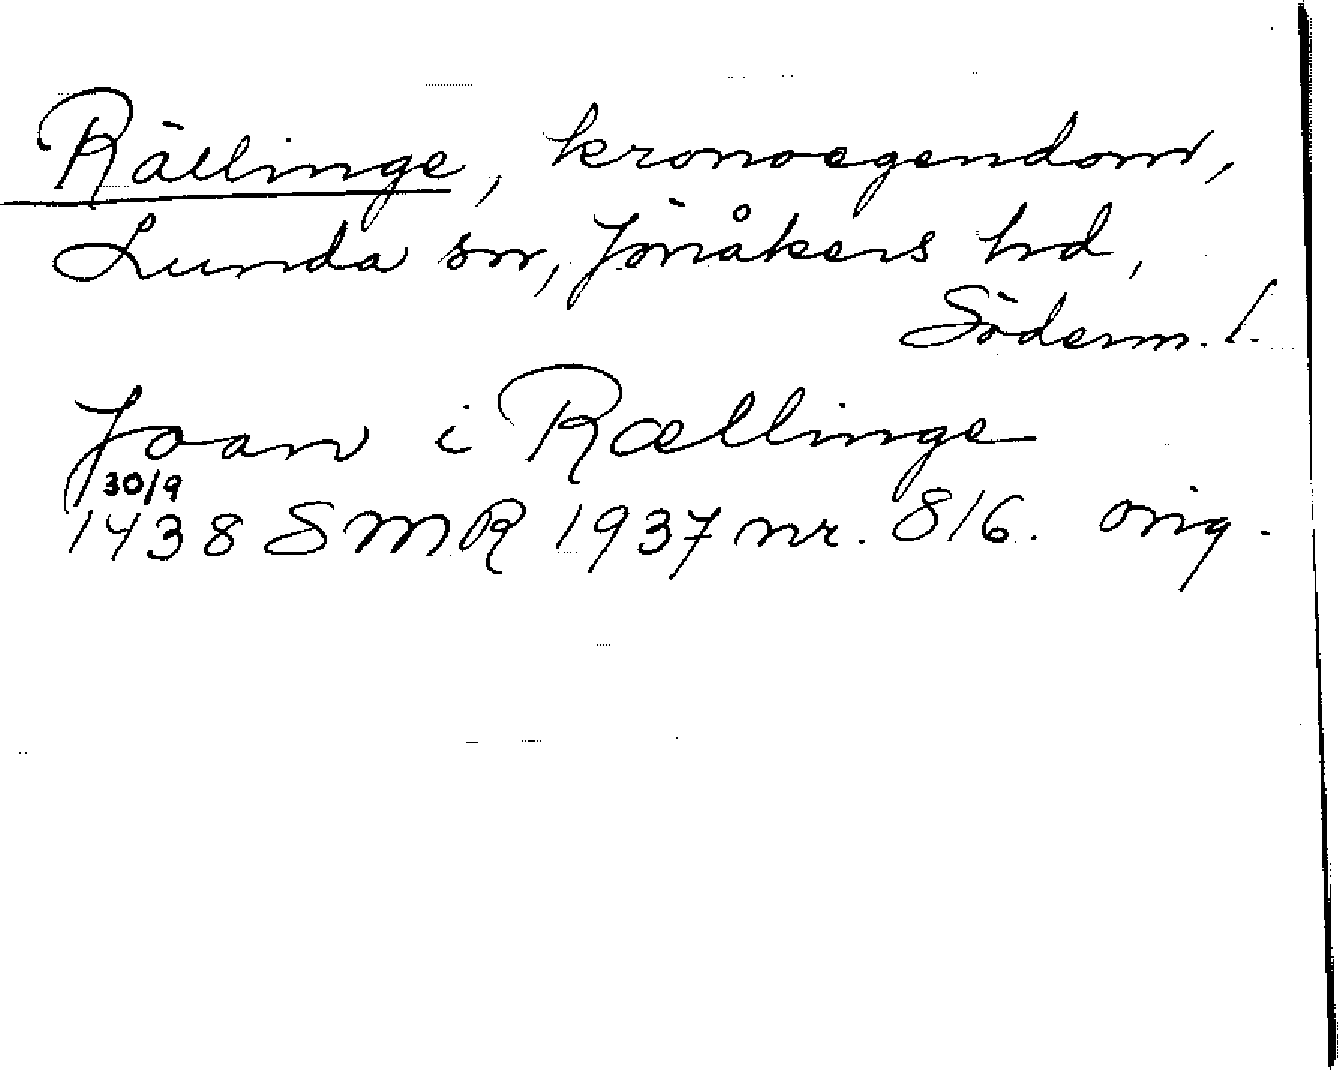 Rällinge, kronoegendom,
Lunda sn, Jönåkers hd,
Söderm. l.
Joan i Rællinge
30/9
1438 SMR 1937 nr. 816. orig.